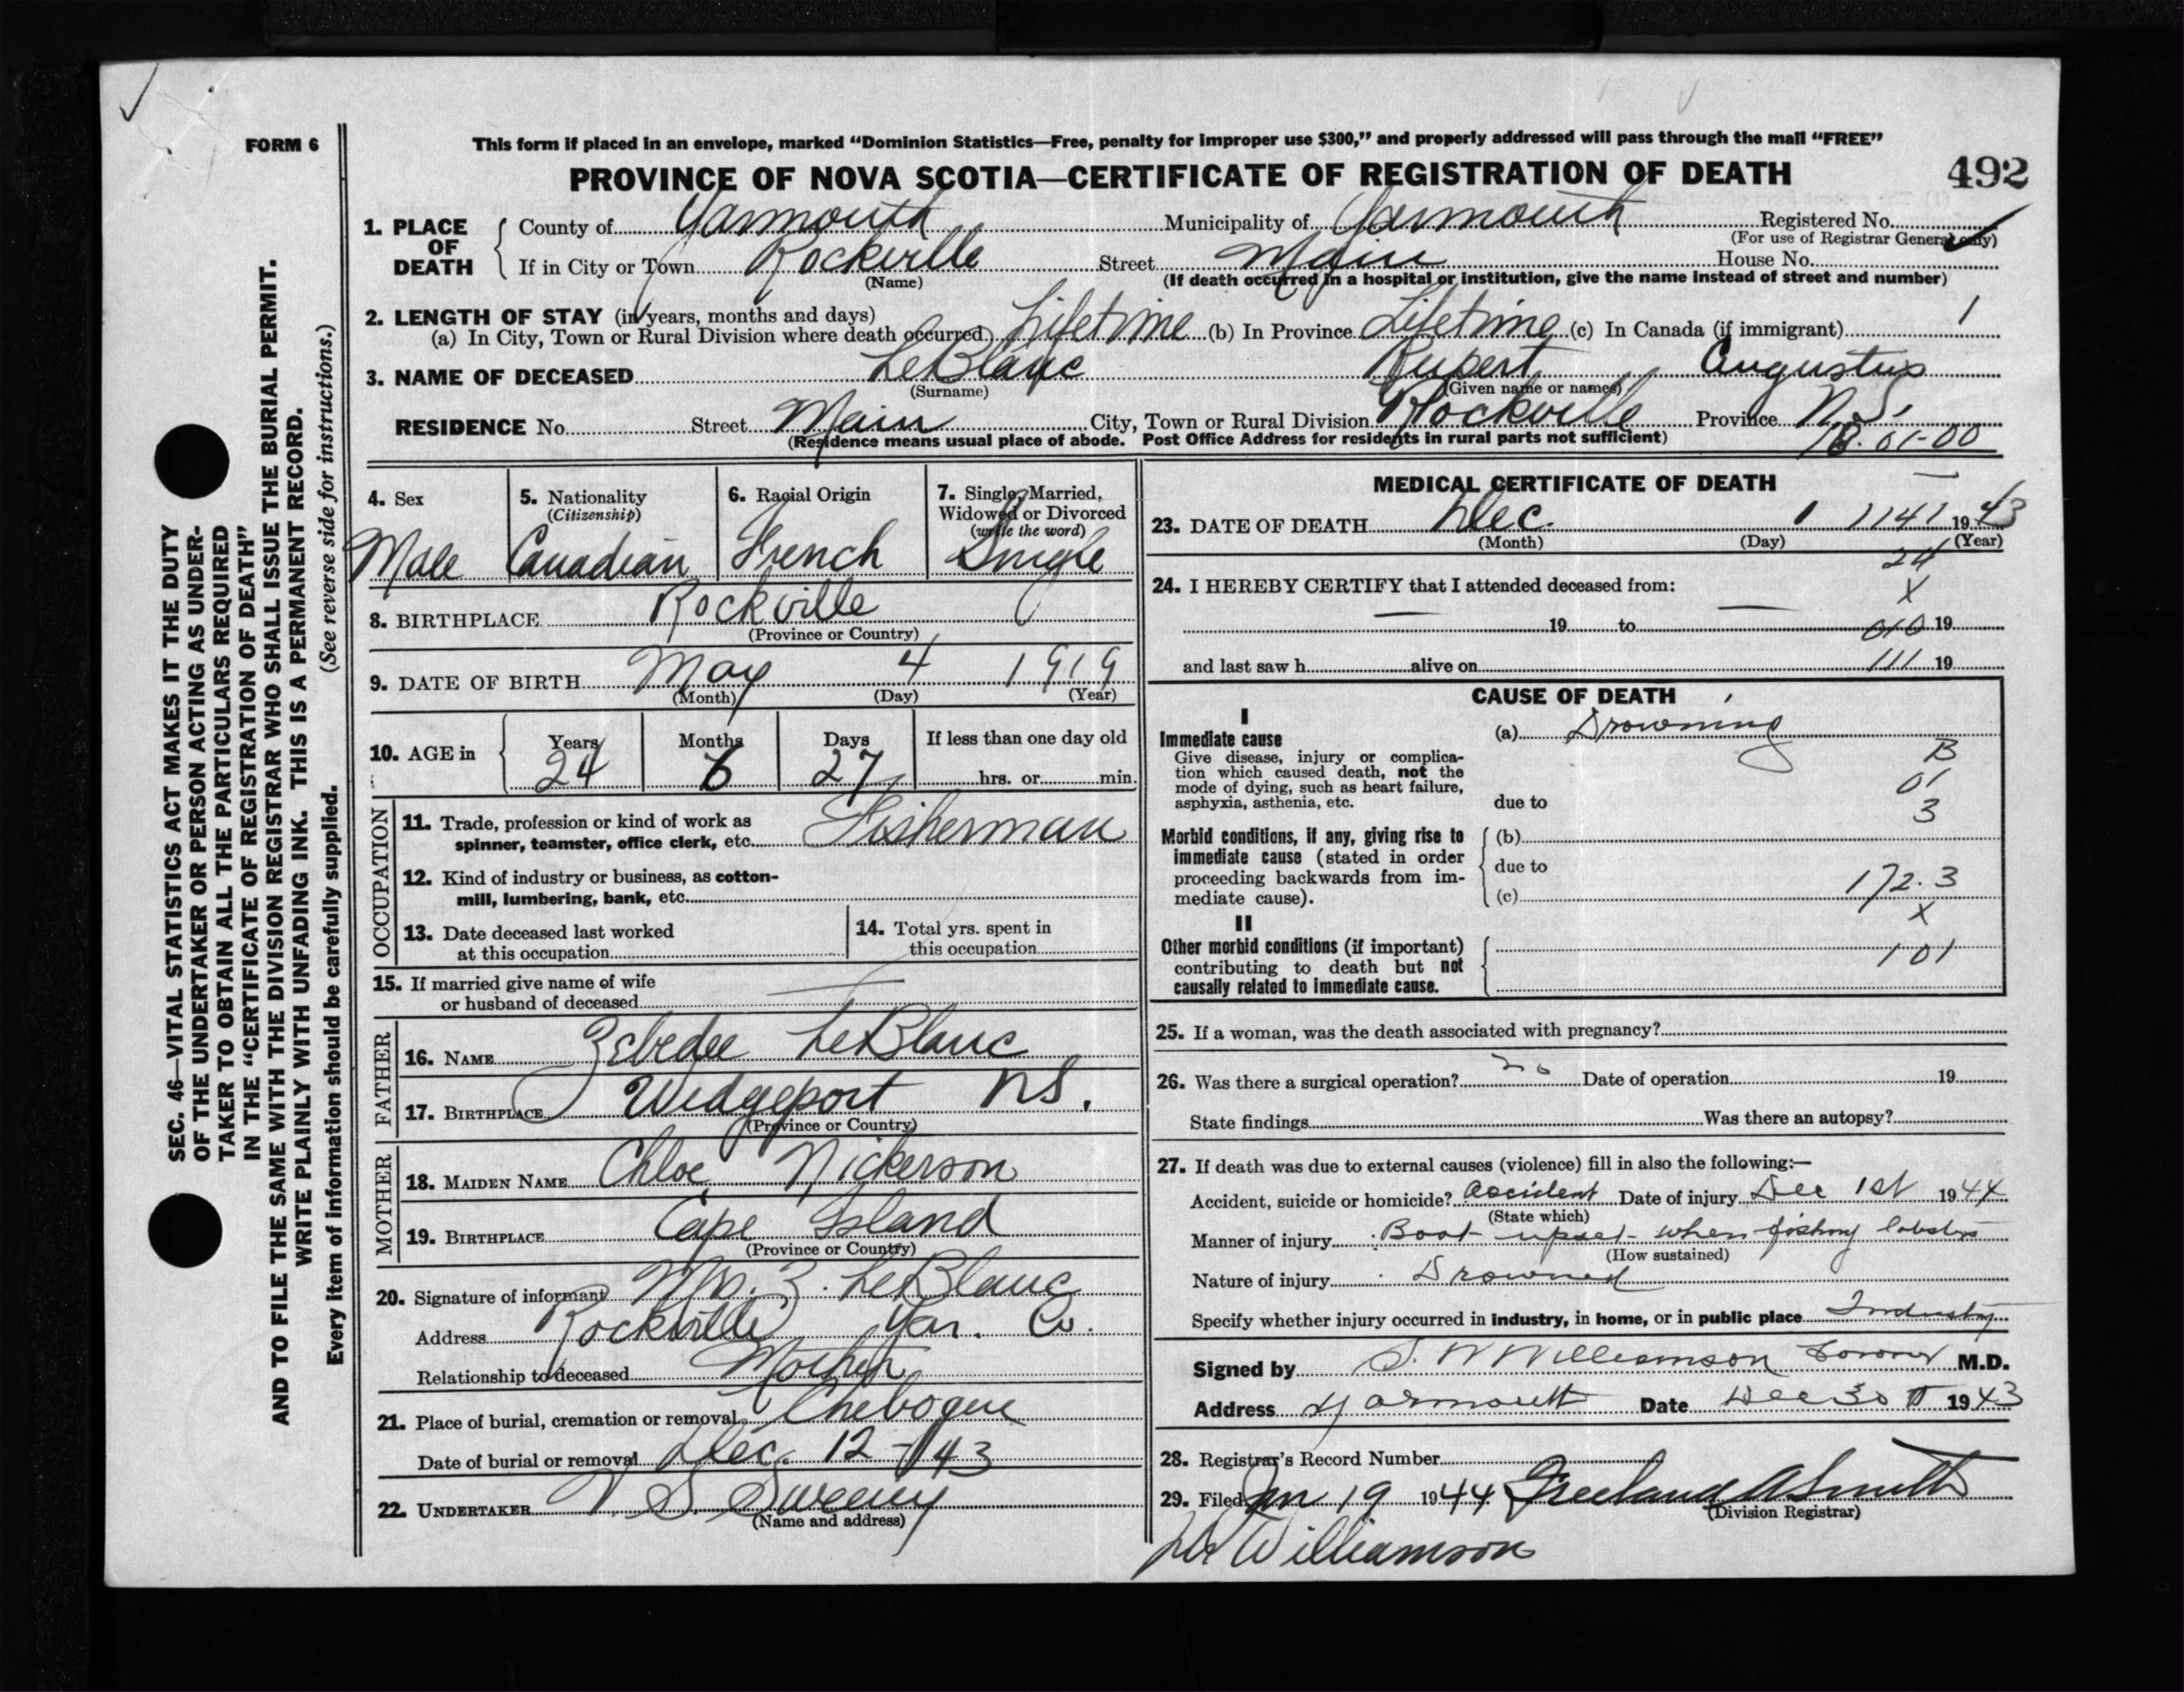 FORM 6
This form if placed in an envelope, marked “Dominion Statistics—Free, penalty for improper use $300,” and properly addressed will pass through the mail “FREE”
PROVINCE OF NOVA SCOTIA—CERTIFICATE OF REGISTRATION OF DEATH
492
SEC. 46—VITAL STATISTICS ACT MAKES IT THE DUTY
OF THE UNDERTAKER OR PERSON ACTING AS UNDER-
TAKER TO OBTAIN ALL THE PARTICULARS REQUIRED
IN THE “CERTIFICATE OF REGISTRATION OF DEATH”
AND TO FILE THE SAME WITH THE DIVISION REGISTRAR WHO SHALL ISSUE THE BURIAL PERMIT.
WRITE PLAINLY WITH UNFADING INK. THIS IS A PERMANENT RECORD.
Every item of information should be carefully supplied. (See reverse side for instructions.)
1. PLACE OF DEATH
County of Yarmouth Municipality of Yarmouth Registered No.
(For use of Registrar General only)
If in City or Town Rockville Street Main House No.
(Name) (If death occurred in a hospital or institution, give the name instead of street and number)
2. LENGTH OF STAY (in years, months and days)
(a) In City, Town or Rural Division where death occurred Lifetime (b) In Province Lifetime (c) In Canada (if immigrant) 1
3. NAME OF DECEASED LeBlanc Rupert Augustus
(Surname) (Given name or names)
RESIDENCE No. Street Main City, Town or Rural Division Rockville Province N.S.
(Residence means usual place of abode. Post Office Address for residents in rural parts not sufficient) 01-00
4. Sex 5. Nationality 6. Racial Origin 7. Single, Married,
(Citizenship) Widowed or Divorced
(write the word)
Male Canadian French Single
8. BIRTHPLACE Rockville
(Province or Country)
9. DATE OF BIRTH May 4 1919
(Month) (Day) (Year)
10. AGE in Years Months Days If less than one day old
24 6 27 hrs. or min.
OCCUPATION
11. Trade, profession or kind of work as
spinner, teamster, office clerk, etc. Fisherman
12. Kind of industry or business, as cotton-
mill, lumbering, bank, etc.
13. Date deceased last worked 14. Total yrs. spent in
at this occupation this occupation
15. If married give name of wife
or husband of deceased
FATHER
16. NAME Zebedee LeBlanc
17. BIRTHPLACE Wedgeport NS.
(Province or Country)
MOTHER
18. MAIDEN NAME Chloe Nickerson
19. BIRTHPLACE Cape Island
(Province or Country)
20. Signature of informant Mrs. Z. LeBlanc
Address Rockville Yar. Co.
Relationship to deceased Mother
21. Place of burial, cremation or removal Chebogue
Date of burial or removal Dec. 12-43
22. UNDERTAKER V S Sweeny
(Name and address)
MEDICAL CERTIFICATE OF DEATH
23. DATE OF DEATH Dec. 1 1141 1943
(Month) (Day) (Year)
24
24. I HEREBY CERTIFY that I attended deceased from: X
19 to 010 19
and last saw h alive on 111 19
CAUSE OF DEATH
I
Immediate cause (a) Drowning
Give disease, injury or complica-
tion which caused death, not the
mode of dying, such as heart failure,
asphyxia, asthenia, etc. due to
B
01
3
Morbid conditions, if any, giving rise to (b)
immediate cause (stated in order due to
proceeding backwards from im-
mediate cause). (c) 172.3
X
II
Other morbid conditions (if important) 101
contributing to death but not
causally related to immediate cause.
25. If a woman, was the death associated with pregnancy?
26. Was there a surgical operation? no Date of operation 19
State findings Was there an autopsy?
27. If death was due to external causes (violence) fill in also the following:—
Accident, suicide or homicide? Accident Date of injury Dec 1st 1944
(State which)
Manner of injury Boat upset when fishing lobsters
(How sustained)
Nature of injury Drowned
Specify whether injury occurred in industry, in home, or in public place Industry
Signed by S. W Williamson Coroner M.D.
Address Yarmouth Date Dec 30 1943
28. Registrar’s Record Number
29. Filed Jan 19 1944 Freeland A Smith
(Division Registrar)
Dr Williamson